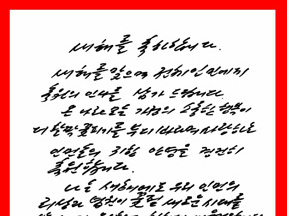 새해를 축하합니다.
새해를 맞으며 전체 인민에게
축원의 인사를 삼가 드립니다.
온 나라 모든 가정의 소중한 행복이
더 활짝 꽃피기를 부디 바라며 사랑하는
인민들의 귀한 안녕을 경건히
축원합니다.
나는 새해에도 우리 인민의
리상과 념원이 꽃필 새로운 시대를